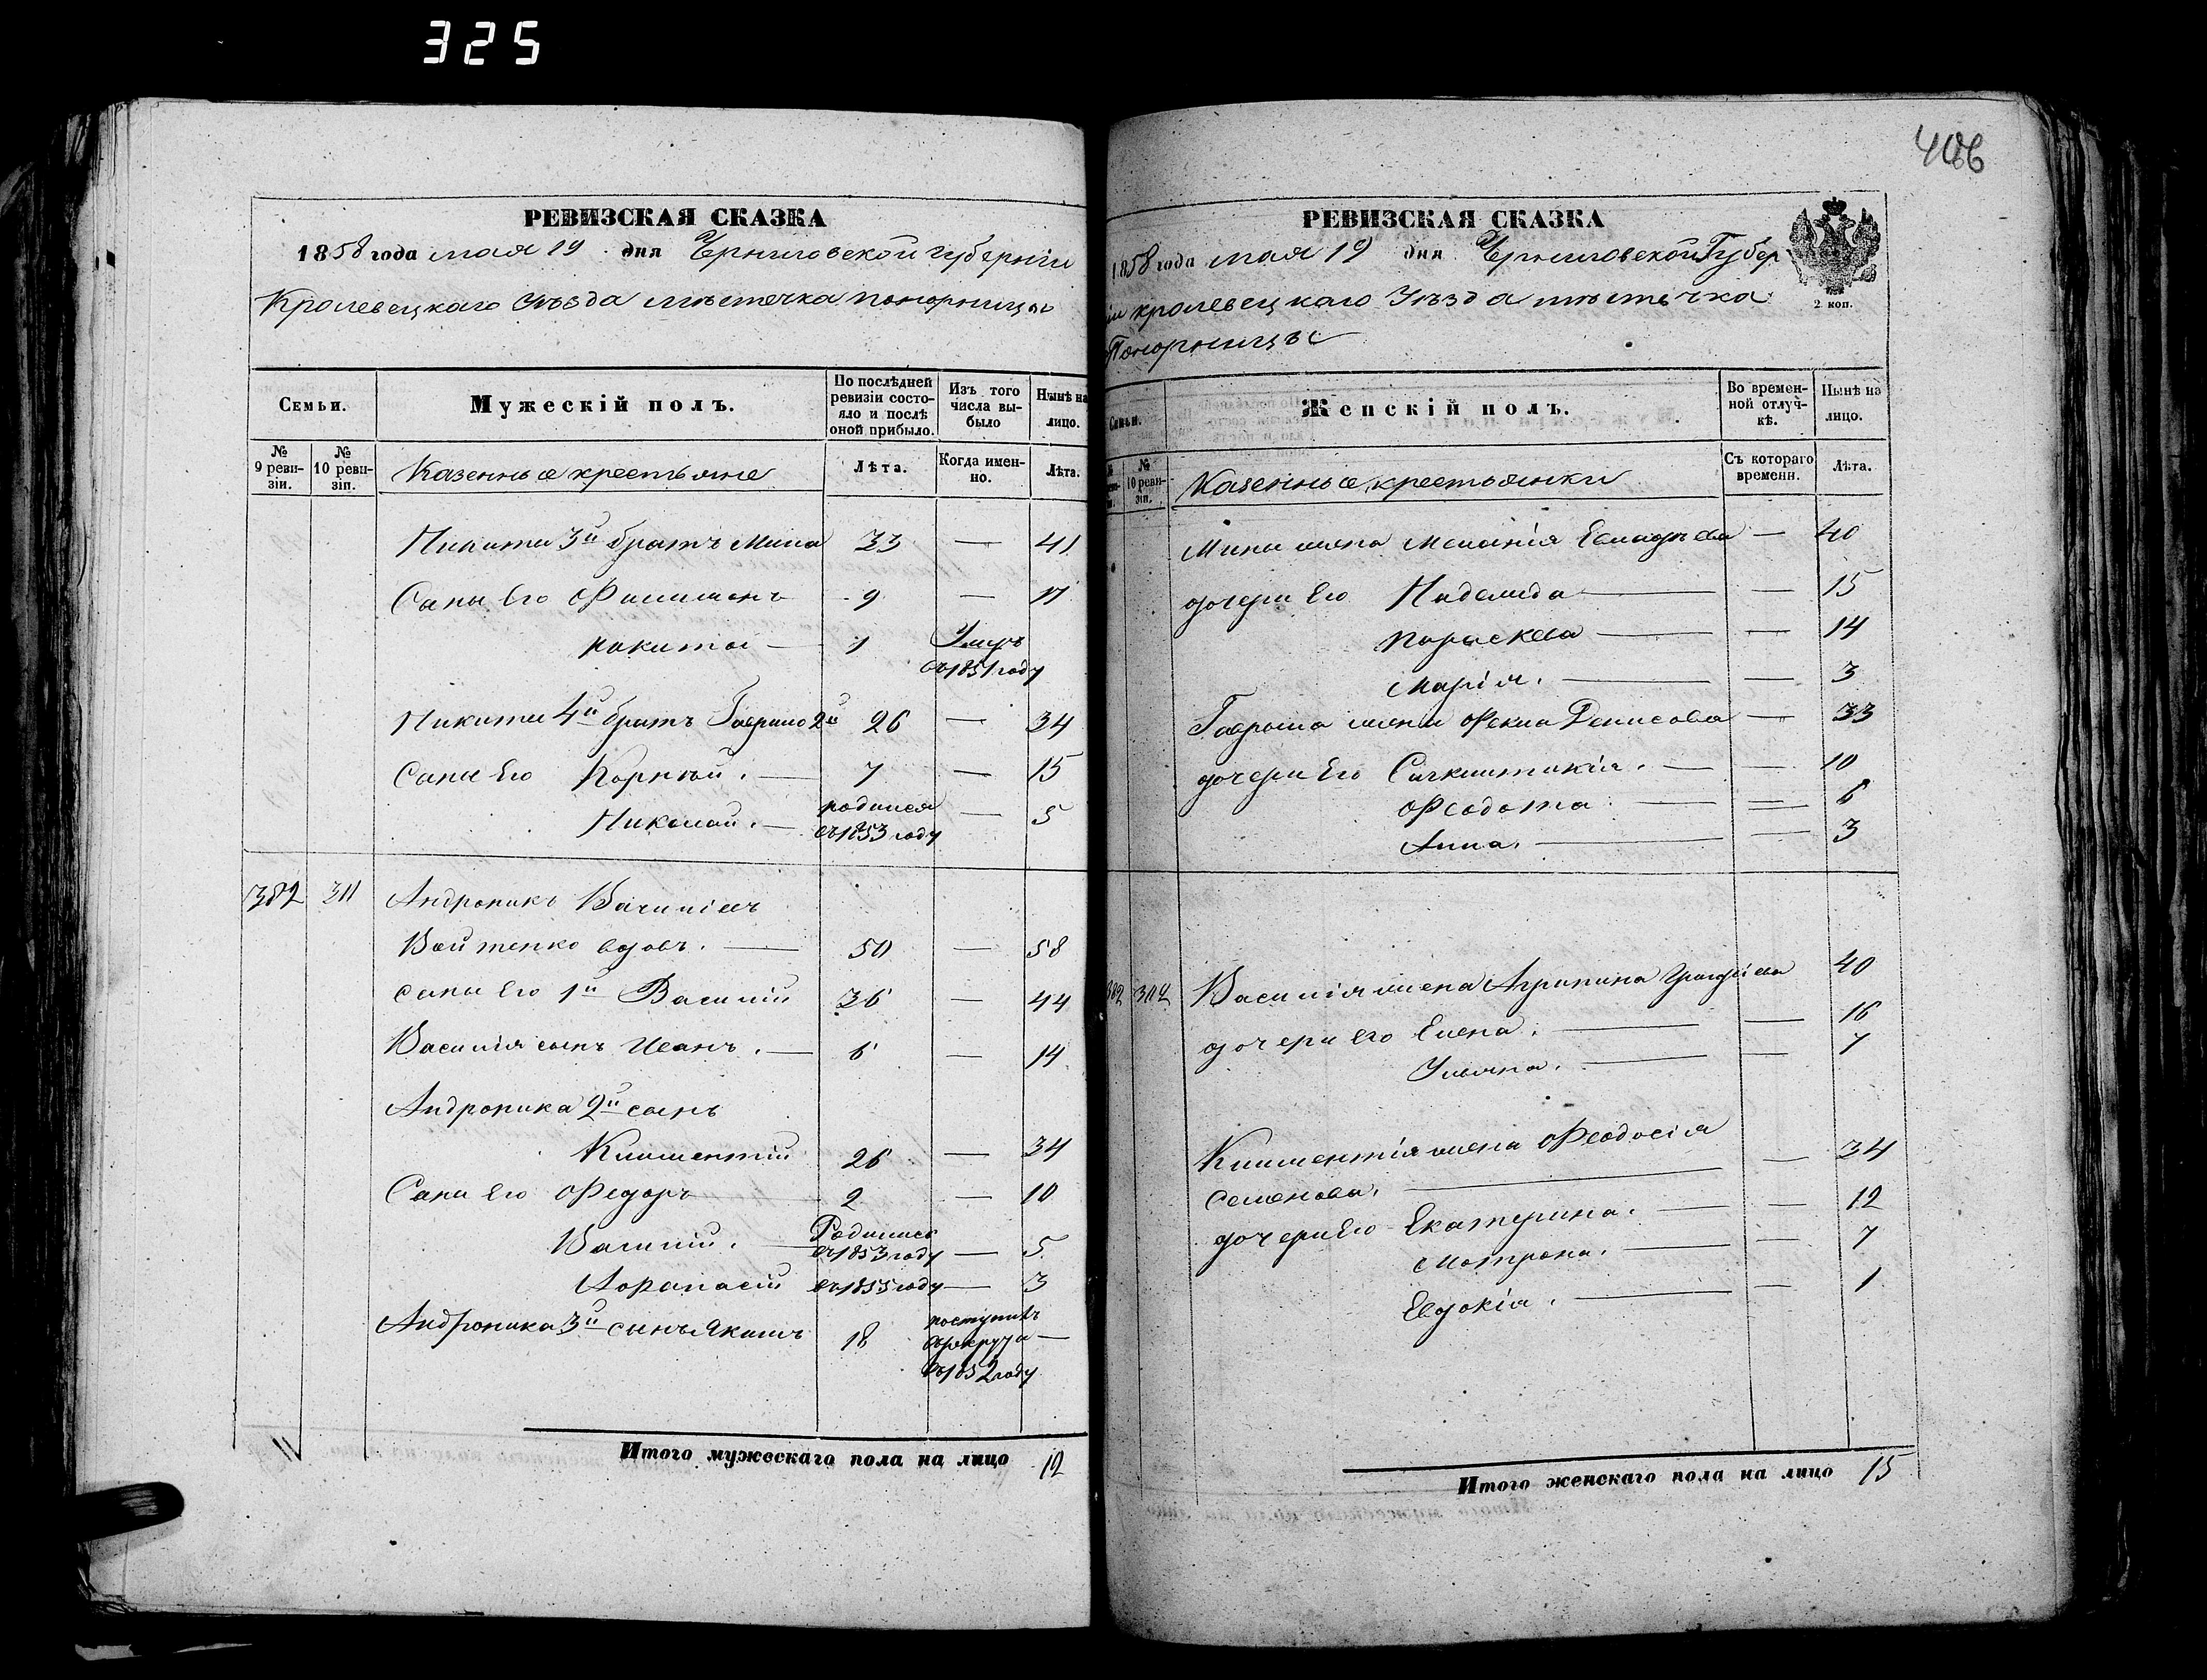 325
406
РЕВИЗСКАЯ СКАЗКА
1858 года мая 19 дня Черниговской губернiи
Кролевецкаго Уѣзда мѣстечка понорницы
Семьи.
Мужескiй полъ.
По послѣдней ревизiи состояло и послѣ оной прибыло.
Изъ того числа выбыло
Нынѣ на лицо.
№ 9 ревизiи.
№ 10 ревизiи.
Казенные крестьяне
Лѣта.
Когда именно.
Лѣта.
Никиты 3й братъ Мина 33 — 41
Сыны Его Филимонъ 9 — 17
никита — 1 Умеръ въ 1851 году
Никиты 4й братъ Гаврило 2й 26 — 34
Сыны Его Корнѣй. — 7 — 15
Николай. — родился въ 1853 году — 5
382 311 Андроникъ Васильiевъ
Войтенко вдовъ. — 50 — 58
сыны Его 1й Василiй 36 — 44
Василiя сынъ Иванъ. — 6 — 14
Андроника 2й сынъ
Климентiй 26 — 34
Сыны Его Федоръ 2 — 10
Василiй. — Родились въ 1853 году — 5
Афанасiй въ 1855 году — 3
Андроника 3й сынъ Якимъ 18 поступилъ въ рекруты въ 1852 году —
Итого мужескаго пола на лицо 12
РЕВИЗСКАЯ СКАЗКА
1858 года мая 19 дня Черниговской Губер
нiи кролевецкаго Уѣзда мѣстечка
Понорницы
2 коп.
Семьи.
Женскiй полъ.
Во временной отлучкѣ.
Нынѣ на лицо.
№ 10 ревизiи.
Казенные крестьянки
Съ котораго времени.
Лѣта.
Мины жена Меланiя — 40
дочери Его — 15
Параскева — — 14
Марiя. — — 3
Гаврила жена Фекла Денисова — 33
дочери Его — — 10
Феодота — — 6
Анна. — — 3
382 311 Василiя жена Агрипина 40
дочери его Елена. — — 16
Ульяна. — — 7
Климентiя жена Феодосiя
Семенова. — — 34
дочери Его Екатерина. — — 12
Мотрона. — — 7
Евдокiя. — — 1
Итого женскаго пола на лицо 15